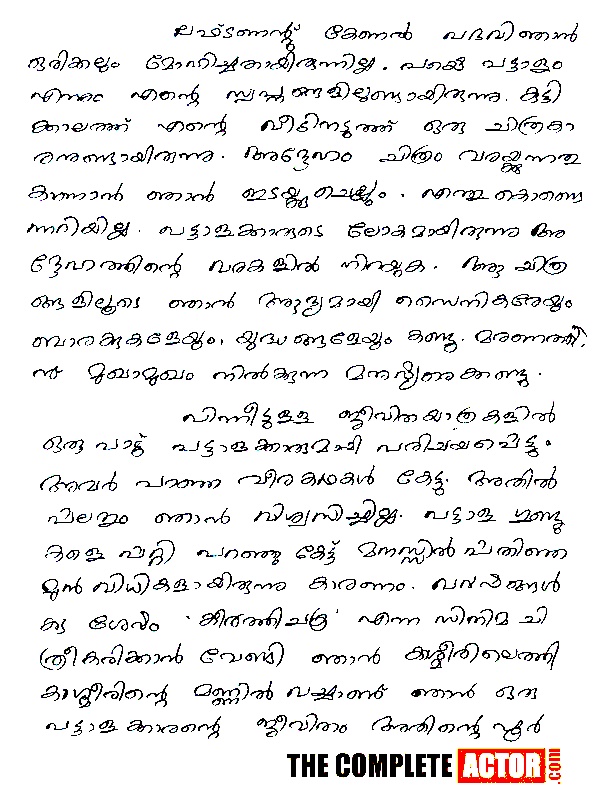 ലഫ്ടണന്റ് കേണൽ പദവി ഞാൻ
ഒരിക്കലും മോഹിച്ചതായിരുന്നില്ല. പക്ഷെ പട്ടാളം
എന്നും എന്റെ സ്വപ്നങ്ങളിലുണ്ടായിരുന്നു. കുട്ടി
ക്കാലത്ത് എന്റെ വീടിനടുത്ത് ഒരു ചിത്രകാ
രനുണ്ടായിരുന്നു. അദ്ദേഹം ചിത്രം വരയ്ക്കുന്നതു
കാണാൻ ഞാൻ ഇടയ്ക്കു ചെല്ലും. എന്തുകൊണ്ടെ
ന്നറിയില്ല. പട്ടാളക്കാരുടെ ലോകമായിരുന്നു അ
ദ്ദേഹത്തിന്റെ വരകളിൽ നിറയുക. ആ ചിത്ര
ങ്ങളിലൂടെ ഞാൻ ആദ്യമായി സൈനികരേയും
ബാരക്കുകളേയും, യുദ്ധങ്ങളേയും കണ്ടു. മരണത്തി
ന് മുഖാമുഖം നിൽക്കുന്ന മനുഷ്യരെക്കണ്ടു.
പിന്നീടുള്ള ജീവിതയാത്രകളിൽ
ഒരുപാട് പട്ടാളക്കാരുമായി പരിചയപ്പെട്ടു.
അവർ പറഞ്ഞ വീരകഥകൾ കേട്ടു. അതിൽ
പലതും ഞാൻ വിശ്വസിച്ചില്ല. പട്ടാള ഗുണ്ടു
കളെ പറ്റി പറഞ്ഞു കേട്ട് മനസ്സിൽ പതിഞ്ഞ
മുൻ വിധികളായിരുന്നു കാരണം. വർഷങ്ങൾ
ക്കു ശേഷം 'കീർത്തിചക്ര' എന്ന സിനിമ ചി
ത്രീകരിക്കാൻ വേണ്ടി ഞാൻ കാശ്മീരിലെത്തി
കാശ്മീരിന്റെ മണ്ണിൽ വച്ചാണ് ഞാൻ ഒരു
പട്ടാളക്കാരന്റെ ജീവിതം അതിന്റെ പൂർ
THE COMPLETE ACTOR.com